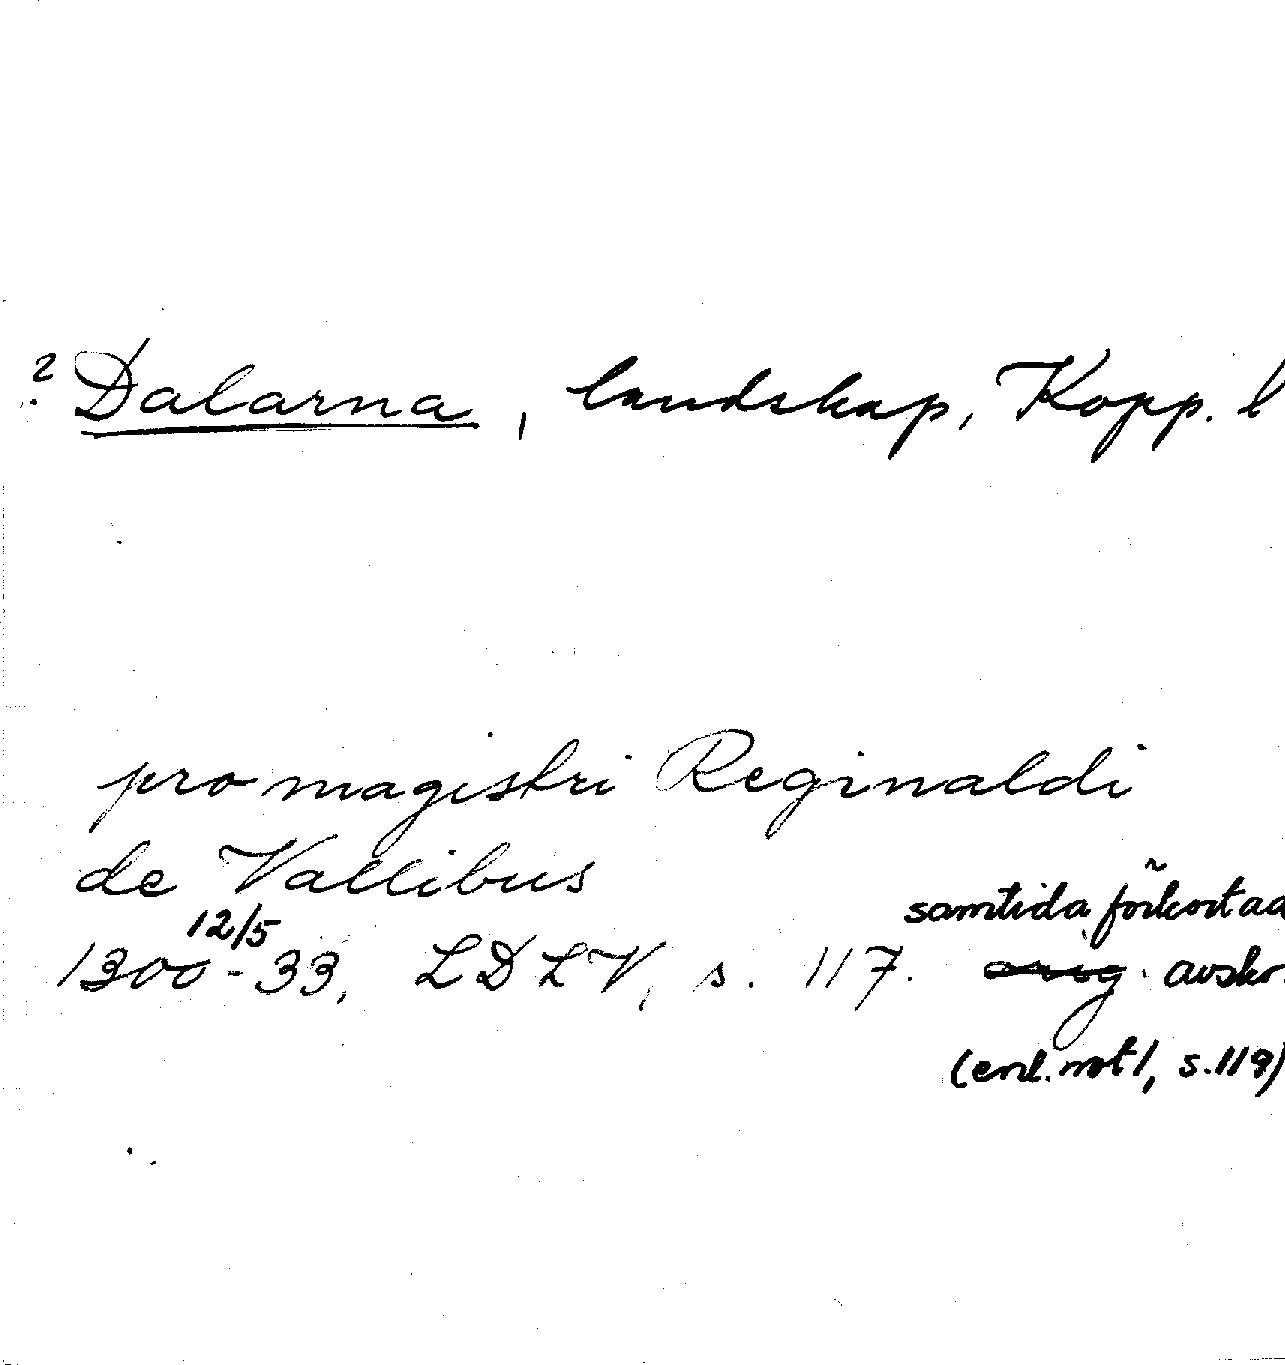 ? Dalarna, landskap, Kopp. l
pro magistri Reginaldi
de Vallibus
samtida förkortad
12/5
1300-33, LDLV, s. 117. orig. avskr.
(enl. not 1, s. 119)